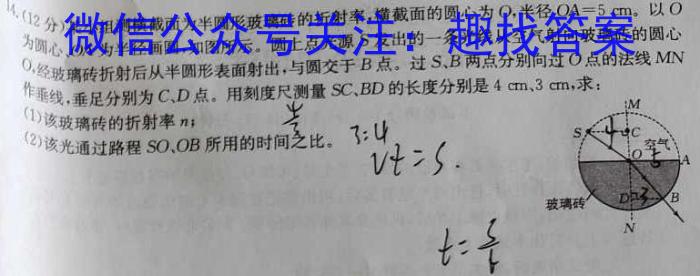 14.(12分)
组测横截面为半圆形玻璃砖的折射率,横截面的圆心为O,半径OA=5 cm。以O
微信公众号关注:趣找答案
为圆心
圆上
发出的一条
O,经玻璃砖折射后从半圆形表面射出,与圆交于B点。过S、B两点分别向过O点的法线MN
作垂线,垂足分别为C、D点。用刻度尺测量SC、BD的长度分别是4 cm、3 cm,求:
(1)该玻璃砖的折射率n;
(2)该光通过路程SO、OB所用的时间之比。
4/3
3:4
vt=S.
M
S
4
C
空气
O
5
A
玻璃砖
D
3
B
N